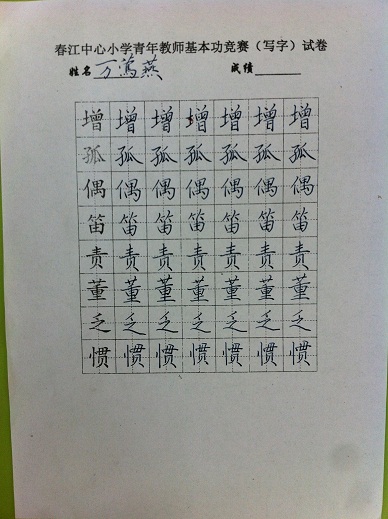 春江中心小学青年教师基本功竞赛（写字）试卷
姓名 万莺燕 成绩
增 增 增 增 增 增 增
孤 孤 孤 孤 孤 孤 孤
偶 偶 偶 偶 偶 偶 偶
笛 笛 笛 笛 笛 笛 笛
责 责 责 责 责 责 责
董 董 董 董 董 董 董
乏 乏 乏 乏 乏 乏 乏
惯 惯 惯 惯 惯 惯 惯